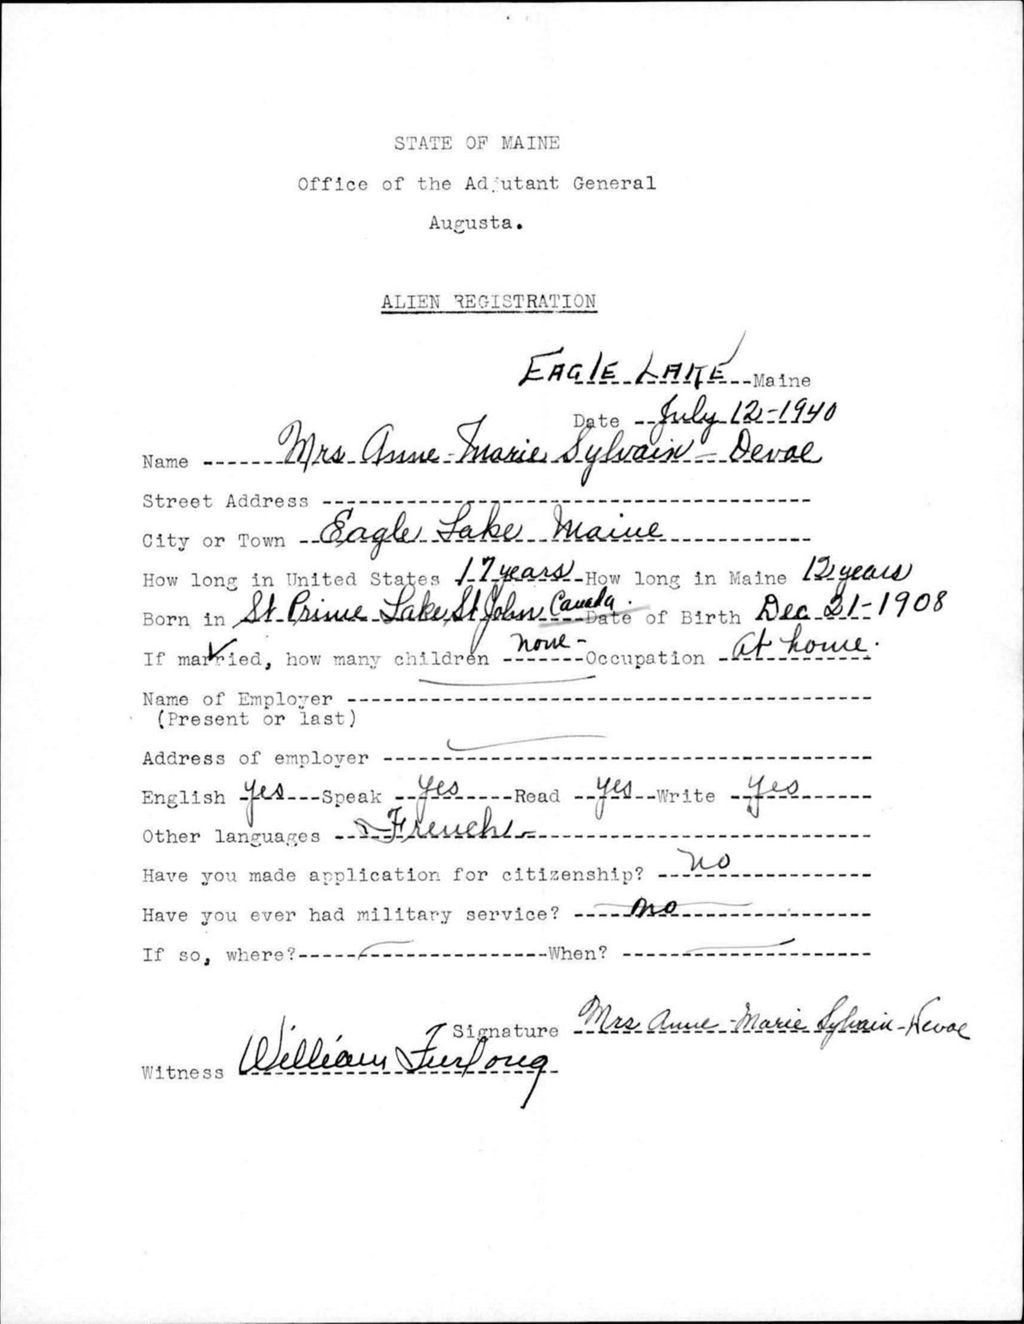 STATE OF MAINE
Office of the Adjutant General
Augusta.
ALIEN REGISTRATION
EAGLE LAKE Maine
Date July 12-1940
Name Mrs Anne-Marie Sylvain-Devoe
Street Address
City or Town Eagle Lake Maine
How long in United States 17 years How long in Maine 12 years
Born in St Prime Lake St John Canada. Date of Birth Dec 21-1908
If married, how many children none - Occupation at home.
Name of Employer
(Present or last)
Address of employer
English yes Speak yes Read yes Write yes
Other languages French -
Have you made application for citizenship? no
Have you ever had military service? no
If so, where? When?
Signature Mrs Anne-Marie Sylvain-Devoe
Witness William Furlong